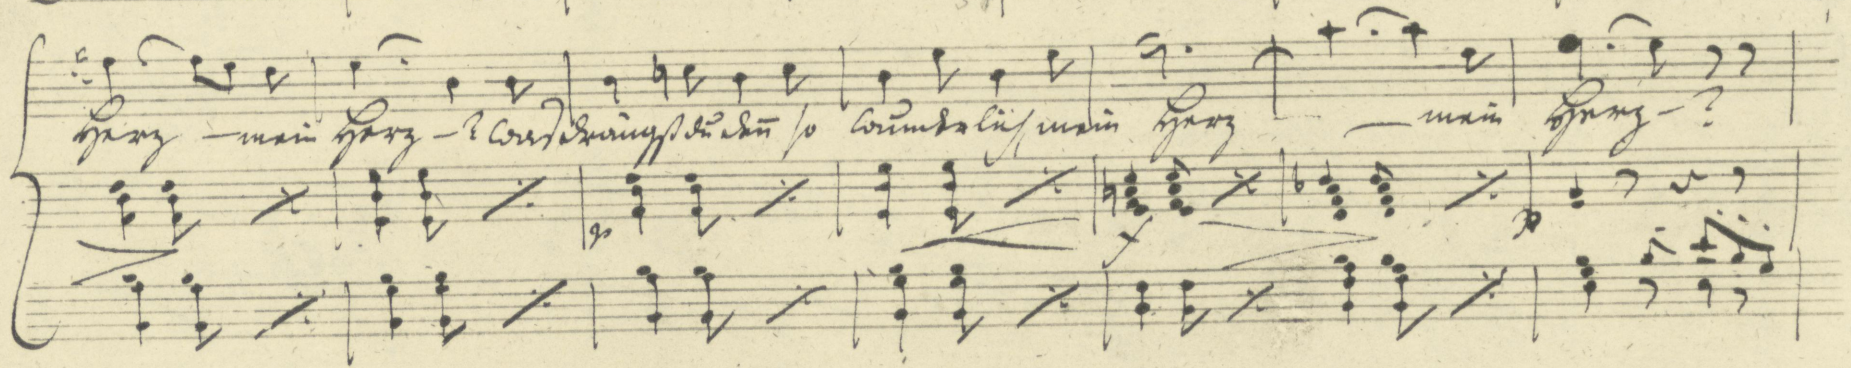 Herz – mein Herz –? Was drängst du denn so wunderlich mein Herz mein Herz –?
p f p